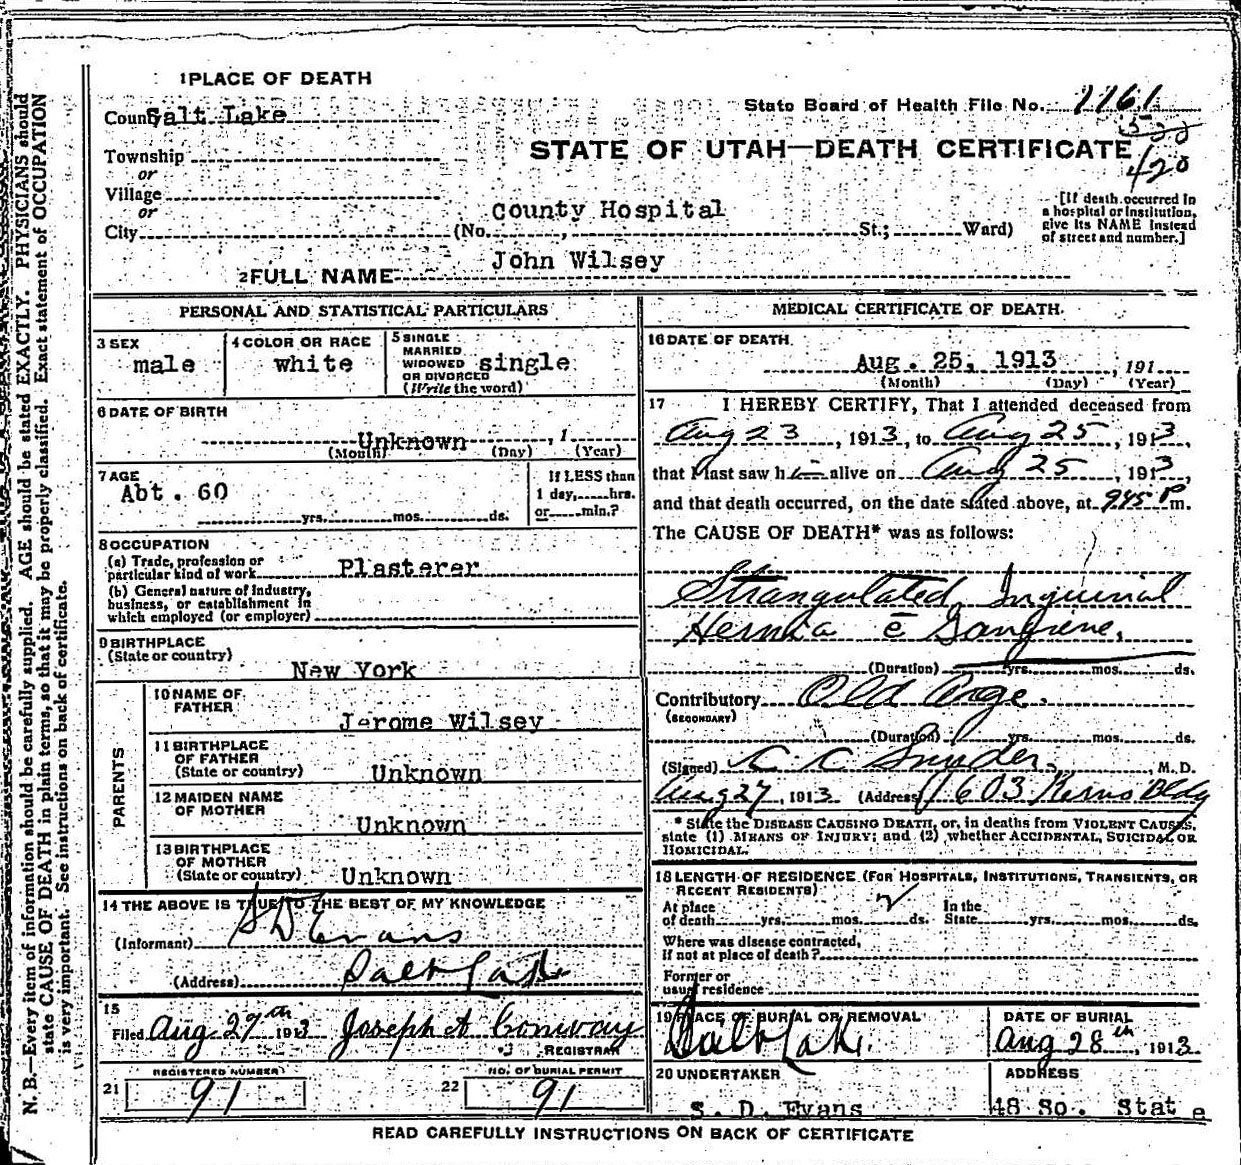 1 PLACE OF DEATH
County Salt Lake
State Board of Health File No. 1161
Township
STATE OF UTAH—DEATH CERTIFICATE
420
or
Village
or
[If death occurred in a hospital or institution, give its NAME instead of street and number.]
County Hospital
City (No. , St.; Ward)
2 FULL NAME John Wilsey
PERSONAL AND STATISTICAL PARTICULARS
3 SEX
male
4 COLOR OR RACE
white
5 SINGLE
MARRIED
WIDOWED
OR DIVORCED
(Write the word)
single
6 DATE OF BIRTH
Unknown , 1
(Month) (Day) (Year)
7 AGE
Abt. 60
yrs. mos. ds.
If LESS than
1 day, hrs.
or min.?
8 OCCUPATION
(a) Trade, profession or
particular kind of work Plasterer
(b) General nature of industry,
business, or establishment in
which employed (or employer)
9 BIRTHPLACE
(State or country)
New York
PARENTS
10 NAME OF
FATHER
Jerome Wilsey
11 BIRTHPLACE
OF FATHER
(State or country) Unknown
12 MAIDEN NAME
OF MOTHER
Unknown
13 BIRTHPLACE
OF MOTHER
(State or country) Unknown
14 THE ABOVE IS TRUE TO THE BEST OF MY KNOWLEDGE
(Informant) S D Evans
(Address) Salt Lake
15
Filed Aug 27th 1913 Joseph A Conway
REGISTRAR
REGISTERED NUMBER
21 91
NO. OF BURIAL PERMIT
22 91
MEDICAL CERTIFICATE OF DEATH.
16 DATE OF DEATH.
Aug. 25, 1913 , 191
(Month) (Day) (Year)
17 I HEREBY CERTIFY, That I attended deceased from
Aug 23, 1913, to Aug 25, 1913,
that I last saw h alive on Aug 25, 1913,
and that death occurred, on the date stated above, at 9:45 P m.
The CAUSE OF DEATH* was as follows:
Strangulated Inguinal
Hernia c̄ Gangrene.
(Duration) yrs. mos. ds.
Contributory Old Age.
(SECONDARY)
(Duration) yrs. mos. ds.
(Signed) C C Snyder, M.D.
Aug 27, 1913 (Address) 603 Kearns Bldg
* State the DISEASE CAUSING DEATH, or, in deaths from VIOLENT CAUSES,
state (1) MEANS OF INJURY; and (2) whether ACCIDENTAL, SUICIDAL OR
HOMICIDAL.
18 LENGTH OF RESIDENCE (FOR HOSPITALS, INSTITUTIONS, TRANSIENTS, OR
RECENT RESIDENTS)
At place
of death yrs. mos. ds.
In the
State yrs. mos. ds.
Where was disease contracted,
If not at place of death?
Former or
usual residence
19 PLACE OF BURIAL OR REMOVAL
Salt Lake.
DATE OF BURIAL
Aug 28th, 1913
20 UNDERTAKER
S. D. Evans
ADDRESS
48 So. State
READ CAREFULLY INSTRUCTIONS ON BACK OF CERTIFICATE
N. B.—Every item of information should be carefully supplied. AGE should be stated EXACTLY. PHYSICIANS should
state CAUSE OF DEATH in plain terms, so that it may be properly classified. Exact statement of OCCUPATION
is very important. See instructions on back of certificate.